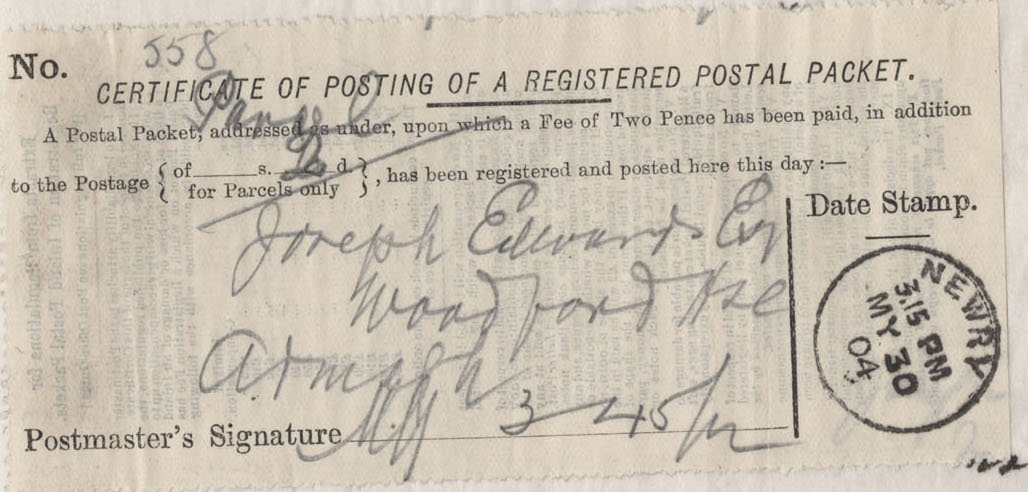 No. 558
CERTIFICATE OF POSTING OF A REGISTERED POSTAL PACKET.
Parcel
A Postal Packet, addressed as under, upon which a Fee of Two Pence has been paid, in addition
to the Postage { of ____ s. ____ d. for Parcels only } , has been registered and posted here this day :—
Date Stamp.
Joseph Edwards Esq
Woodford Hse
Armagh
NEWRY
3.15 PM
MY 30
04
Postmaster's Signature 3-45 pm